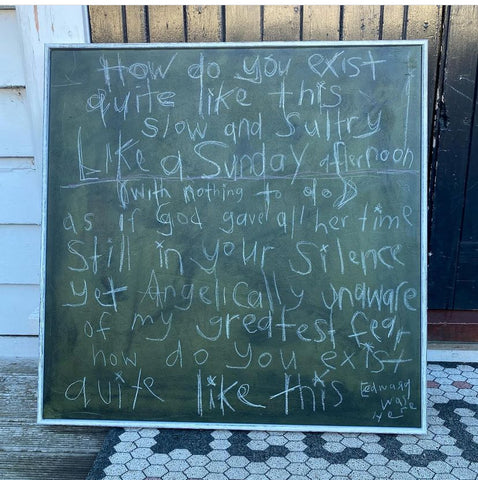 How do you exist
quite like this
slow and sultry
Like a Sunday afternoon
(with nothing to do)
as if god gave all her time
Still in your silence
yet Angelically unaware
of my greatest fear
how do you exist
quite like this
Edward
was
here